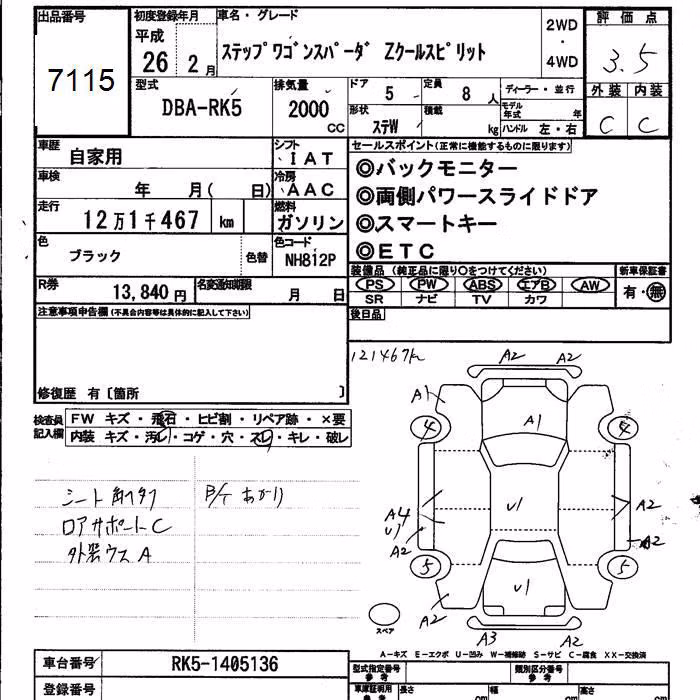 出品番号
7115
初度登録年月
平成
26年 2月
車名・グレード
ステップワゴンスパーダ Zクールスピリット
2WD
・
4WD
評価点
3.5
型式
DBA-RK5
排気量
2000
CC
ドア
5
定員
8人
形状
ステW
積載
kg
ディーラー・並行
モデル年式 年
ハンドル 左・右
外装 内装
C C
車歴
自家用
シフト
IAT
車検
年 月( 日)
冷房
AAC
走行
12万1千467 km
燃料
ガソリン
色
ブラック
色替
色コード
NH812P
R券
13,840円
名変通知期限
月 日
セールスポイント(正常に機能するものに限ります)
◎バックモニター
◎両側パワースライドドア
◎スマートキー
◎ETC
装備品 (純正品に限り○をつけてください)
PS PW ABS エアB AW
SR ナビ TV カワ
新車保証書
有・無
後日品
注意事項申告欄(不具合内容等は具体的に記入して下さい)
修復歴 有〔箇所 〕
検査員記入欄
FW キズ・飛石・ヒビ割・リペア跡・×要
内装 キズ・汚レ・コゲ・穴・スレ・キレ・破レ
ロアサポートC
外装ウスA
121467km
A2 A2
A1
A1
4 4
U1
A4
U1
A2
A2
A2
5 5
U1
A2
A3 A2
スペア
A-キズ E-エクボ U-凹み W-補修跡 S-サビ C-腐食 XX-交換済
車台番号
RK5-1405136
登録番号
型式指定番号
参考
類別区分番号
参考
車庫証明用
参考
長さ
cm
幅
cm
高さ
cm